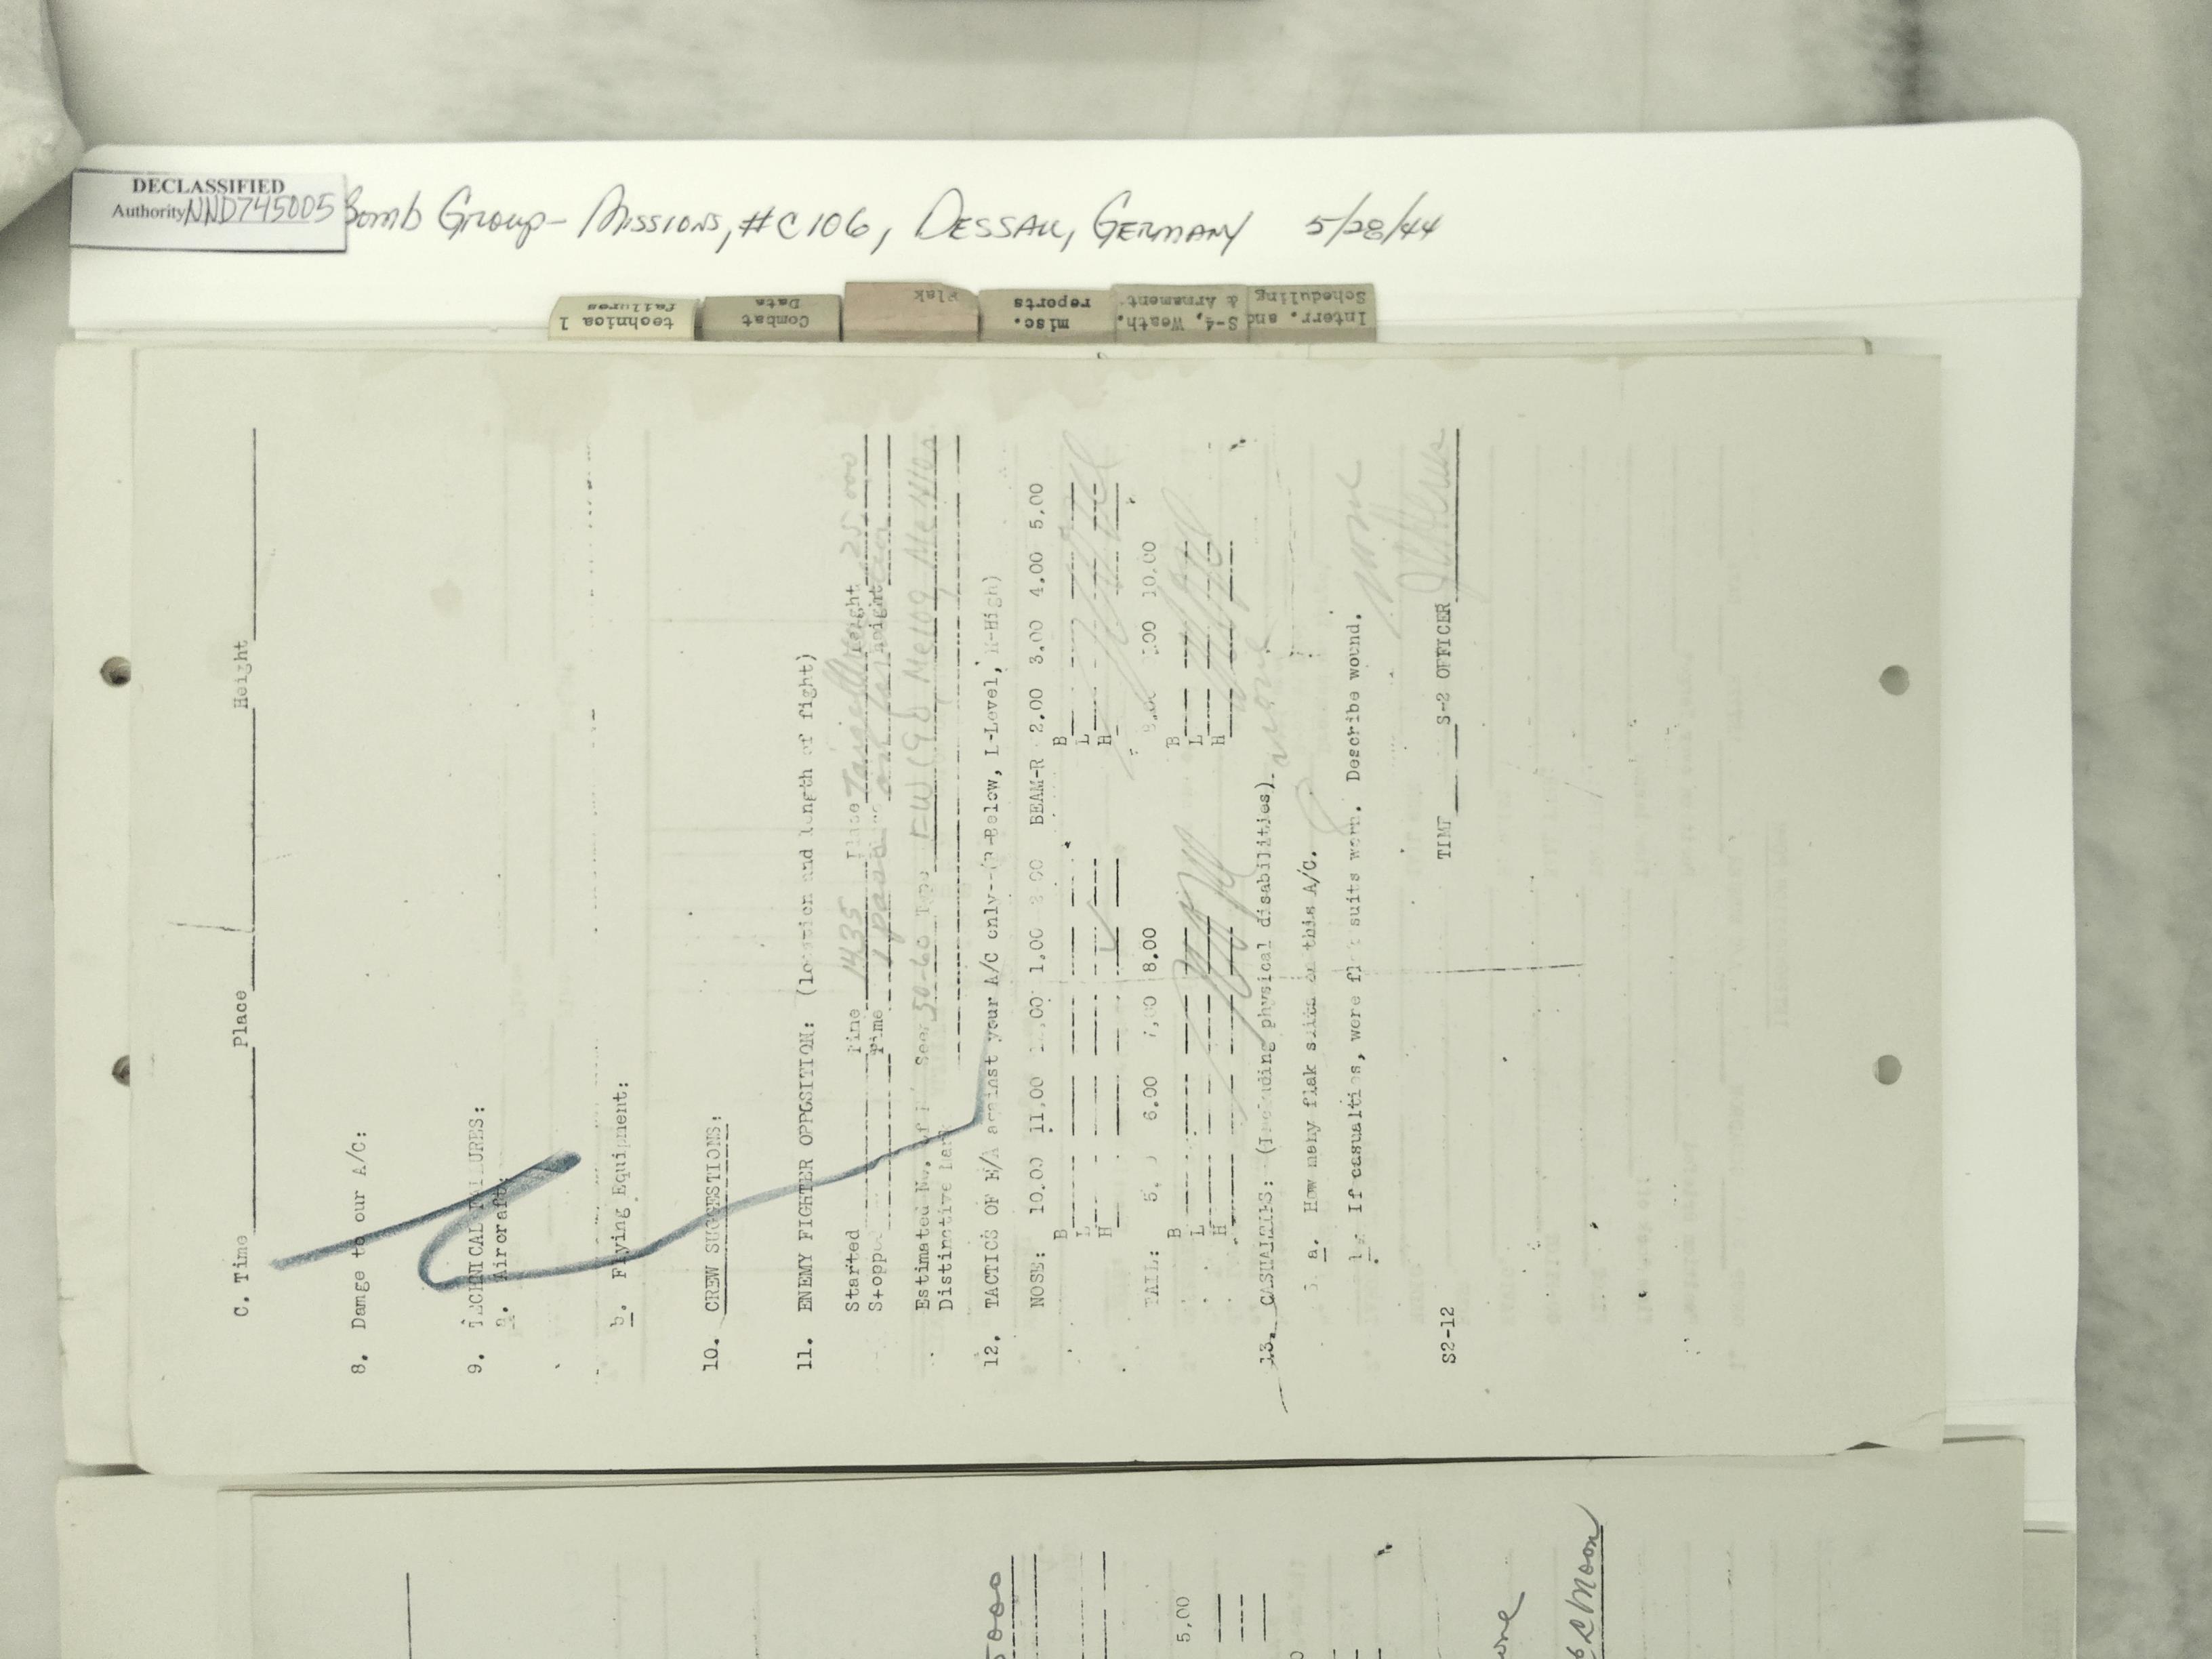 DECLASSIFIED
Authority NND745005
Bomb Group - Missions, #C106, Dessau, Germany 5/28/44
technical failures
Combat Data
Flak
misc. reports
S-4, Weath. & Armament
Interr. and Scheduling
C. Time Place Height
8. Damge to our A/C:
9. TECHNICAL FAILURES:
a. Aircraft:
b. Flying Equipment:
10. CREW SUGGESTIONS:
11. ENEMY FIGHTER OPPOSITION: (location and length of fight)
Started Time 1435 Place Height 25 000
Stopped Time 1 pass Height
Estimated No. of Seen 50-60 Type FW190, Me109
Distinctive
12. TACTICS OF E/A against your A/C only--(B-Below, L-Level, H-High)
NOSE: 10.00 11.00 12.00 1.00 2.00 BEAM-R 2.00 3.00 4.00 5.00
B B
L L
H H
TAIL: 5.00 6.00 7.00 8.00 8.00 9.00 10.00
B B
L L
H H
13. CASUALTIES: (Including physical disabilities). none
a. How many flak suits on this A/C.
b. If casualties, were flak suits worn. Describe wound. none
TIME S-2 OFFICER
S2-12
5000
5.00
Moon